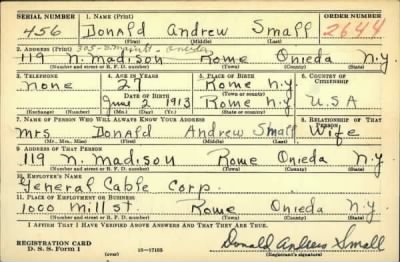 SERIAL NUMBER 1. NAME (Print) ORDER NUMBER
456 Donald Andrew Small 2644
(First) (Middle) (Last)
2. ADDRESS (Print)
119 N. Madison Rome Onieda N.Y
(Number and street or R. F. D. number) (Town) (County) (State)
3. TELEPHONE 4. AGE IN YEARS 5. PLACE OF BIRTH 6. COUNTRY OF CITIZENSHIP
none 27 Rome N.Y
(Town or county)
DATE OF BIRTH
June 2 1913 Rome N.Y U.S.A
(Exchange) (Number) (Mo.) (Day) (Yr.) (State or country)
7. NAME OF PERSON WHO WILL ALWAYS KNOW YOUR ADDRESS 8. RELATIONSHIP OF THAT PERSON
mrs Donald Andrew Small Wife
(Mr., Mrs., Miss) (First) (Middle) (Last)
9. ADDRESS OF THAT PERSON
119 N. madison Rome Onieda N.Y
(Number and street or R. F. D. number) (Town) (County) (State)
10. EMPLOYER'S NAME
General Cable Corp.
11. PLACE OF EMPLOYMENT OR BUSINESS
1000 Mill st. Rome Onieda N.Y
(Number and street or R. F. D. number) (Town) (County) (State)
I AFFIRM THAT I HAVE VERIFIED ABOVE ANSWERS AND THAT THEY ARE TRUE.
REGISTRATION CARD
D. S. S. Form 1 (over) 16—17105 Donald Andrew Small
(Registrant's signature)